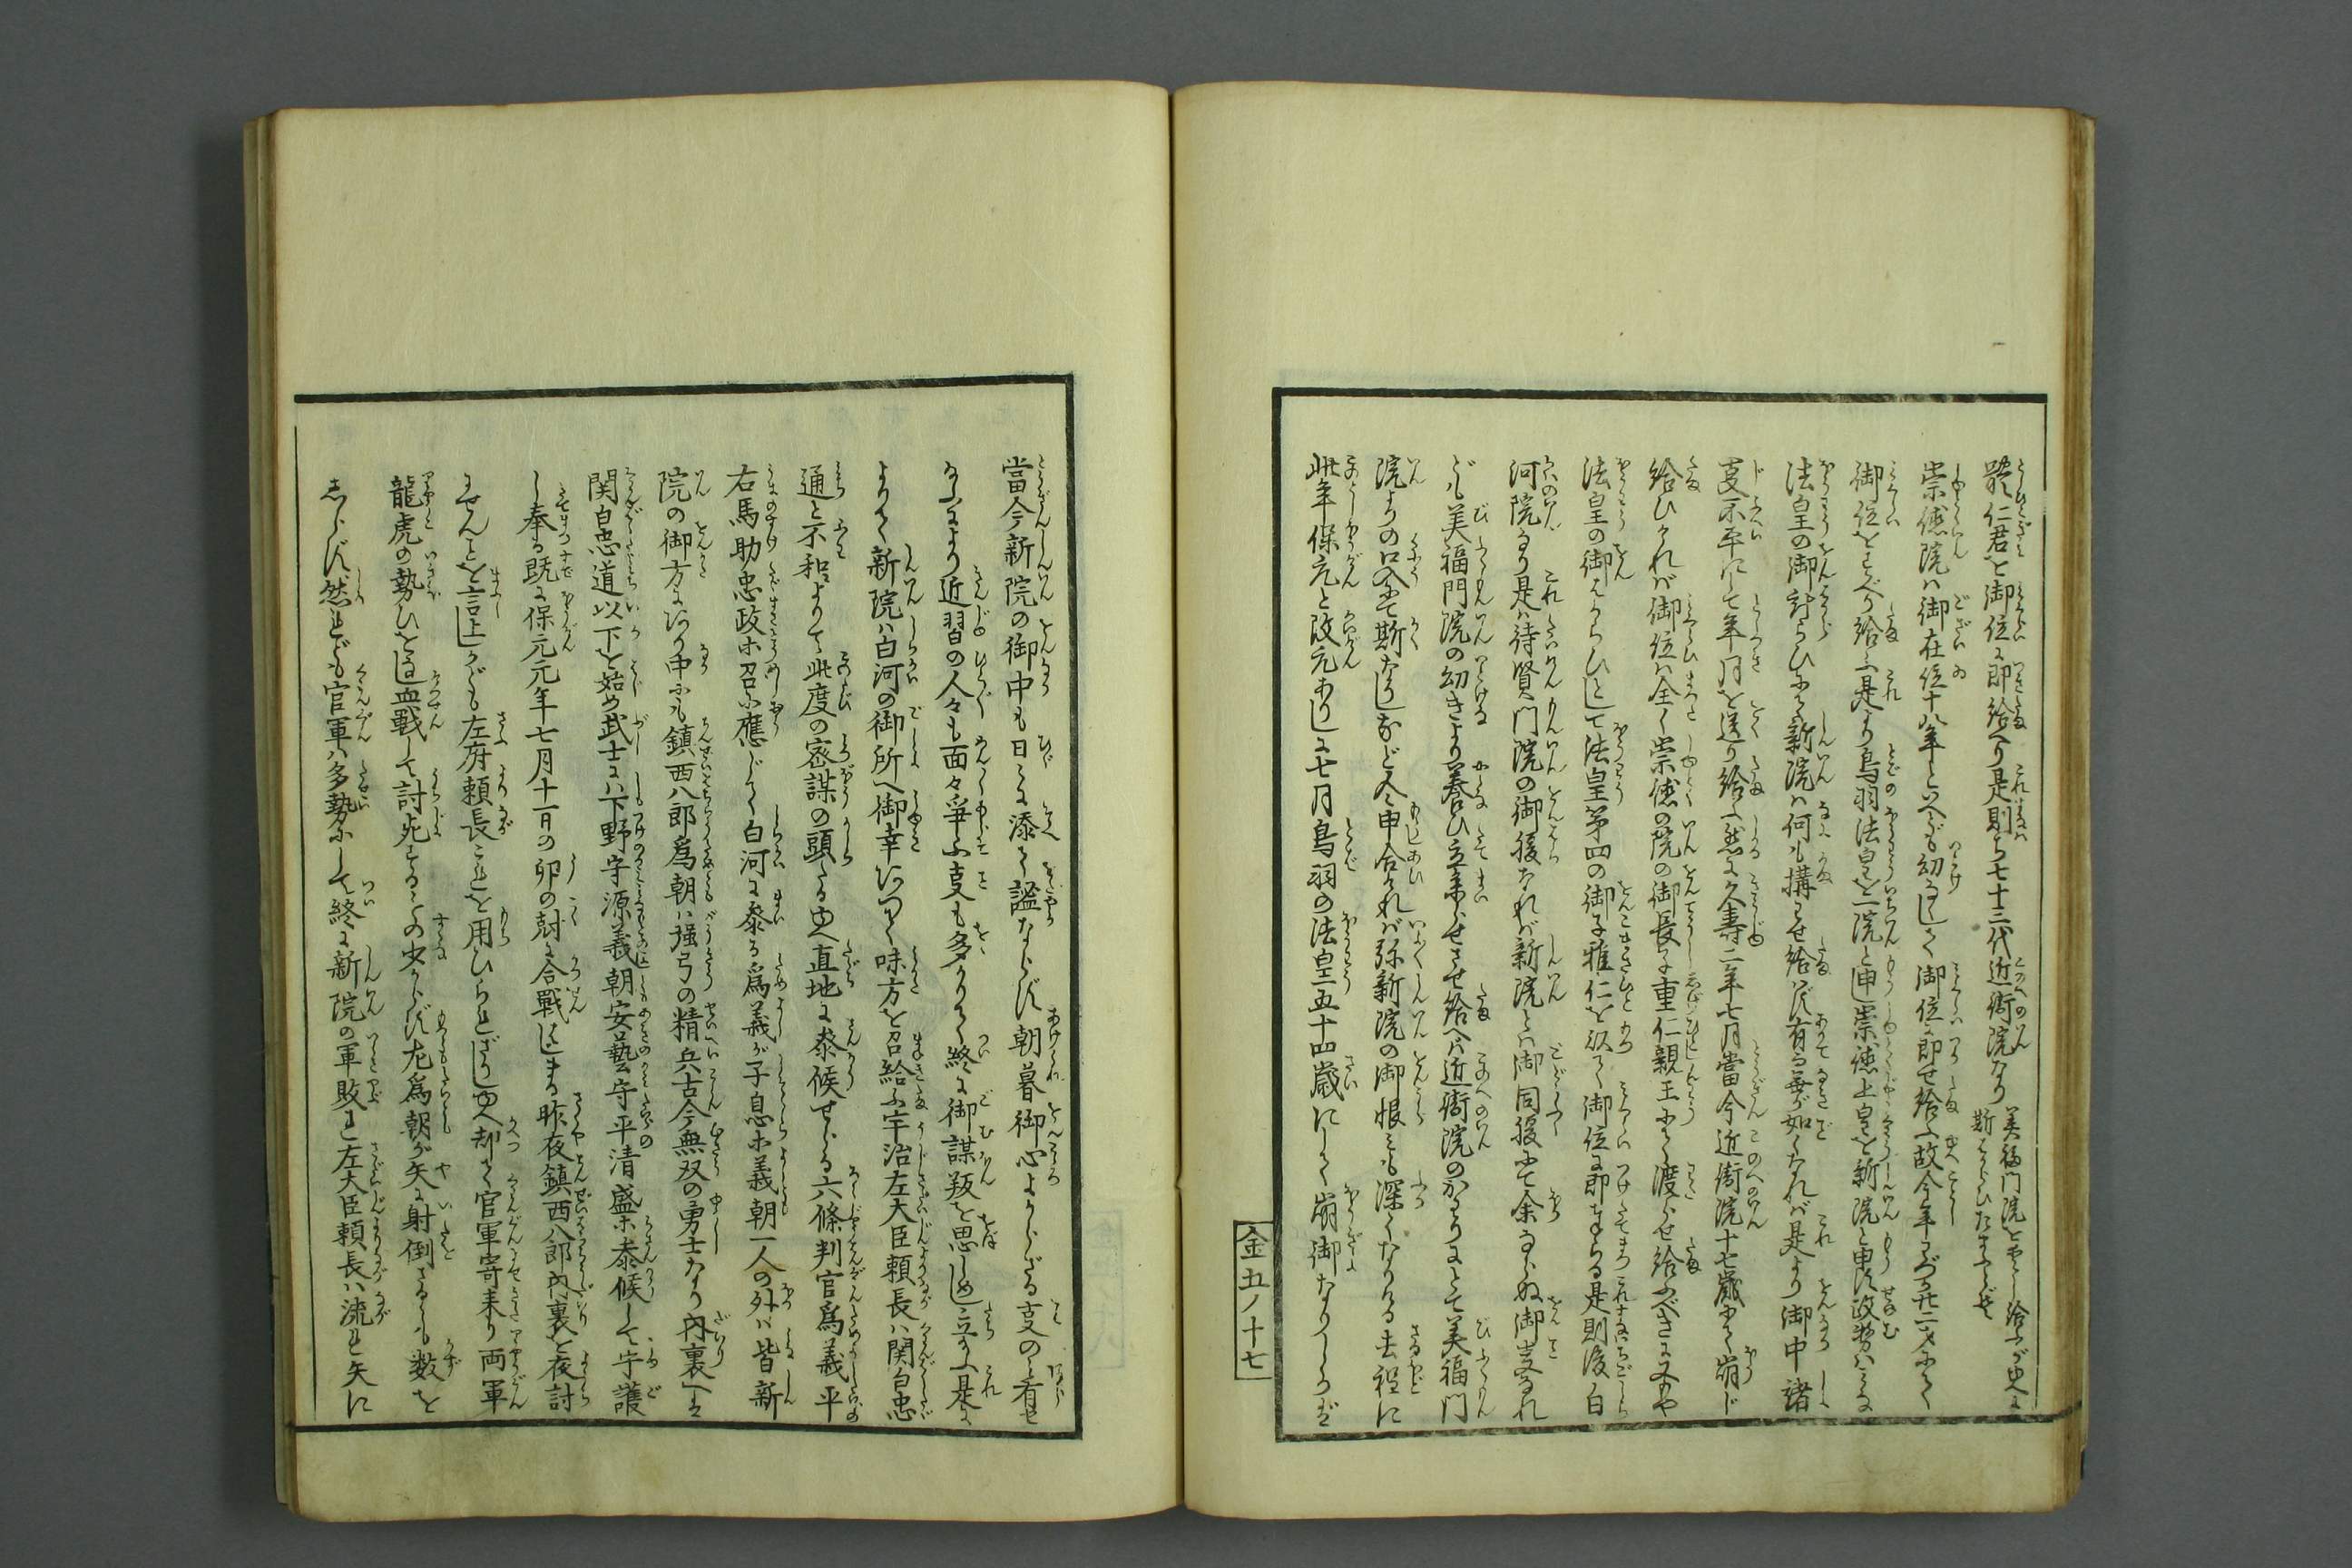 體仁君を御位に即給へり是則ち七十三代近衛院なり 美福門院を申し給ふが史に
斯はからひたまふとぞ
崇徳院ハ御在位十八年といへども幼なくして御位に即せ給ふ故今年わづか廿二才にて
御位をすべり給ふ是より鳥羽法皇を一院と申し崇徳上皇を新院と申す政務ハみな
法皇の御計らひにて新院ハ何も搆ハせ給ハず有て無が如くなれバ是より御中諸
事不平にして年月を送り給ふ然るに久壽二年七月當今近衛院十七歳にて崩じ
給ひけれバ御位ハ全く崇徳の院の御長子重仁親王にこそ渡らせ給ふべきに又もや
法皇の御はからひとして法皇第四の御子雅仁を以て御位に即奉る是則後白
河院なり是ハ待賢門院の御腹なれバ新院とハ御同腹にて余ならぬ御事なれ
ども美福門院の幼きより養ひ立参らせさせ給へバ近衛院のかはりにとて美福門
院よりの口入にて斯なりしなど人々申合けれバ弥新院の御恨みも深くなりける去程に
此年保元と改元ありしに七月鳥羽の法皇五十四歳にして崩御なりしかば
金五ノ十七
當今新院の御中も日々に添て謐ならず朝暮御心よからざる事のミ有せ
給ふにより近習の人々も面々爭ふ事も多かりて終に御謀叛を思しめし立給ふ是に
よりて新院ハ白河の御所へ御幸ありて味方を召給ふ宇治左大臣頼長ハ関白忠
通と不和によりて此度の密謀の頭たる史直地に参候せらる六條判官爲義平
右馬助忠政ホ召に應じて白河に参る爲義が子息ホ義朝一人の外ハ皆新
院の御方にあり中にも鎮西八郎爲朝ハ強弓の精兵古今無双の勇士なり内裏へは
関白忠道以下を始め武士にハ下野守源義朝安藝守平清盛ホ参候して守護
し奉る既に保元元年七月十一日の卯の尅に合戰はじまる昨夜鎮西八郎内裏を夜討
にせんと言上しけれども左府頼長これを用ひられざりし史却て官軍寄来り両軍
龍虎の勢ひをはげし血戰して討死するもの少からず尤爲朝が矢に射倒さるゝも数を
しらず然れども官軍ハ多勢にして終に新院の軍敗れ左大臣頼長ハ流れ矢に